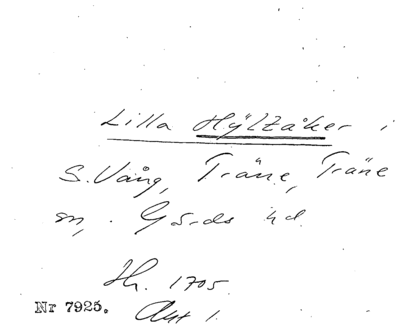 Lilla Hÿltåker i
S. Vång, Träne, Träne
sn, Gärds hd.
Hr. 1705.
Nr 7925. Akt 1.